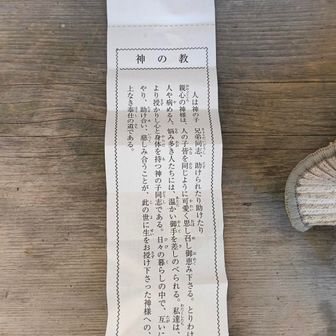 神の教
人は神の子 兄弟同志、助けられたり助けたり
親心の神様は、人の子皆を同じように可愛く思し召し御恵み下さる。とりわけ
人や病める人、悩み多き人たちには、温かい御手を差しのべられる。私達は、
より授かりし心と身体を持つ神の子同志である。日々の暮らしの中で、互いに
やり、助け合い、慈しみ合うことが、此の世に生をお授け下さった神様への、
上なき奉仕の道である。